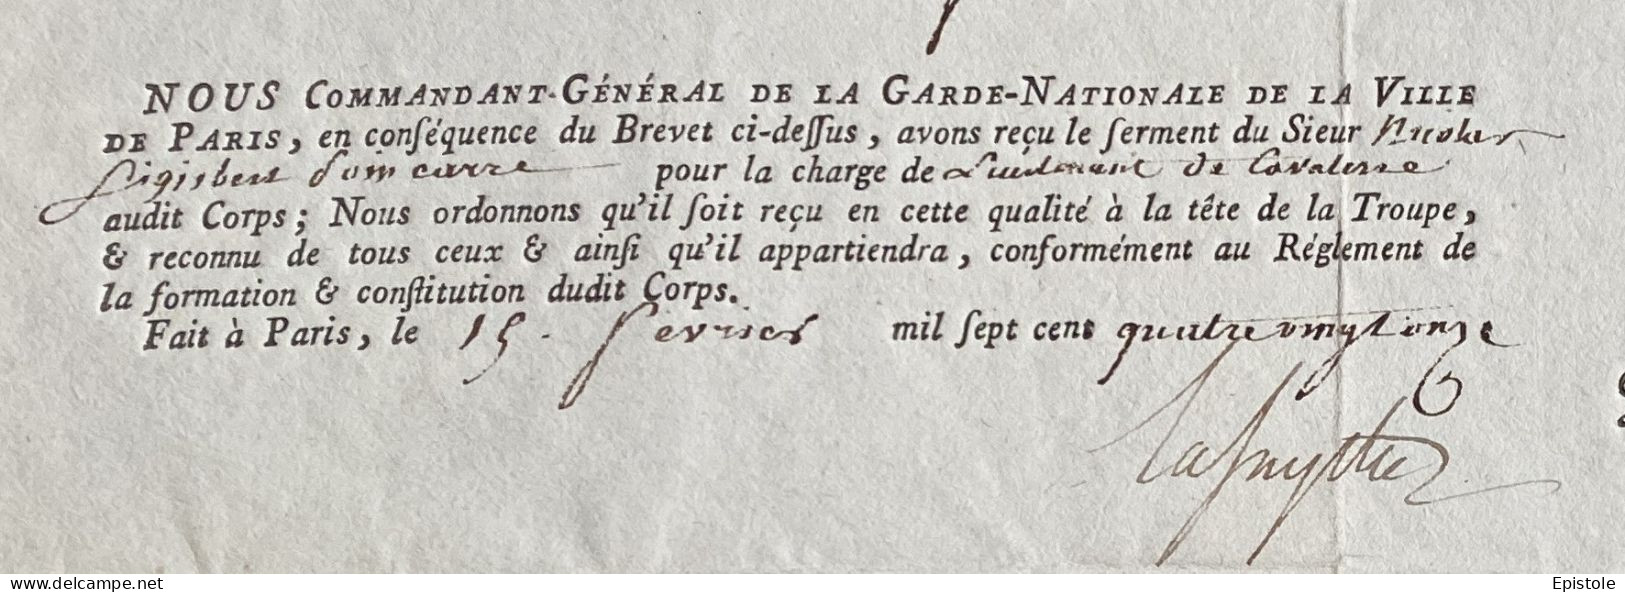 NOUS COMMANDANT-GÉNÉRAL DE LA GARDE-NATIONALE DE LA VILLE
DE PARIS, en conſéquence du Brevet ci-deſſus, avons reçu le ſerment du Sieur Nicolas
Sigisbert Domcarre pour la charge de Lieutenant de Cavalerie
audit Corps; Nous ordonnons qu'il ſoit reçu en cette qualité à la tête de la Troupe,
& reconnu de tous ceux & ainſi qu'il appartiendra, conformément au Réglement de
la formation & conſtitution dudit Corps.
Fait à Paris, le 15. fevrier mil ſept cent quatre vingt onze
Lafayette
www.delcampe.net
Epistole